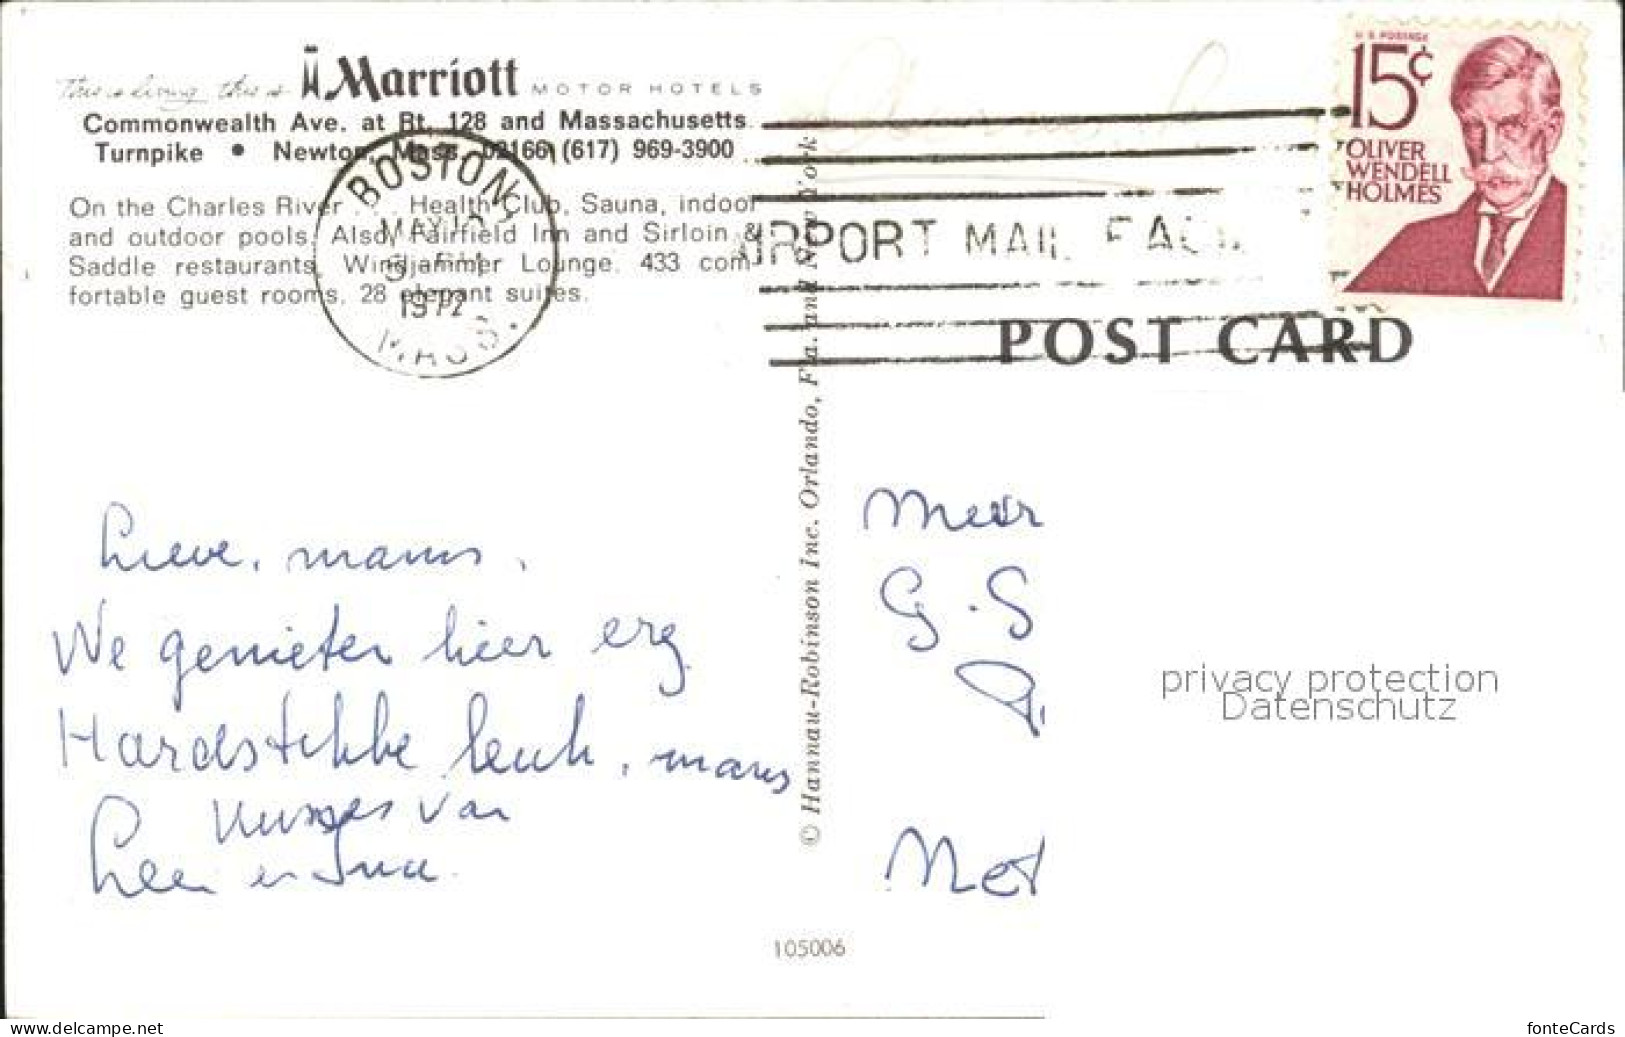 This is living, this is Marriott MOTOR HOTELS
Commonwealth Ave. at Rt. 128 and Massachusetts
Turnpike • Newton, Mass. 02166 (617) 969-3900
On the Charles River . . . Health Club, Sauna, indoor
and outdoor pools. Also, Fairfield Inn and Sirloin &
Saddle restaurants, Windjammer Lounge. 433 com-
fortable guest rooms, 28 elegant suites.
BOSTON
MAY
PM
1972
MASS.
AIRPORT MAIL FAC
U.S. POSTAGE
15¢
OLIVER
WENDELL
HOLMES
POST CARD
Lieve, mams,
We genieten hier erg
Hardstikke leuk, mams
Kusjes van
Leen en
© Hannau-Robinson Inc. Orlando, Fla. and New York
G. S
Net
privacy protection
Datenschutz
105006
www.delcampe.net
fonteCards